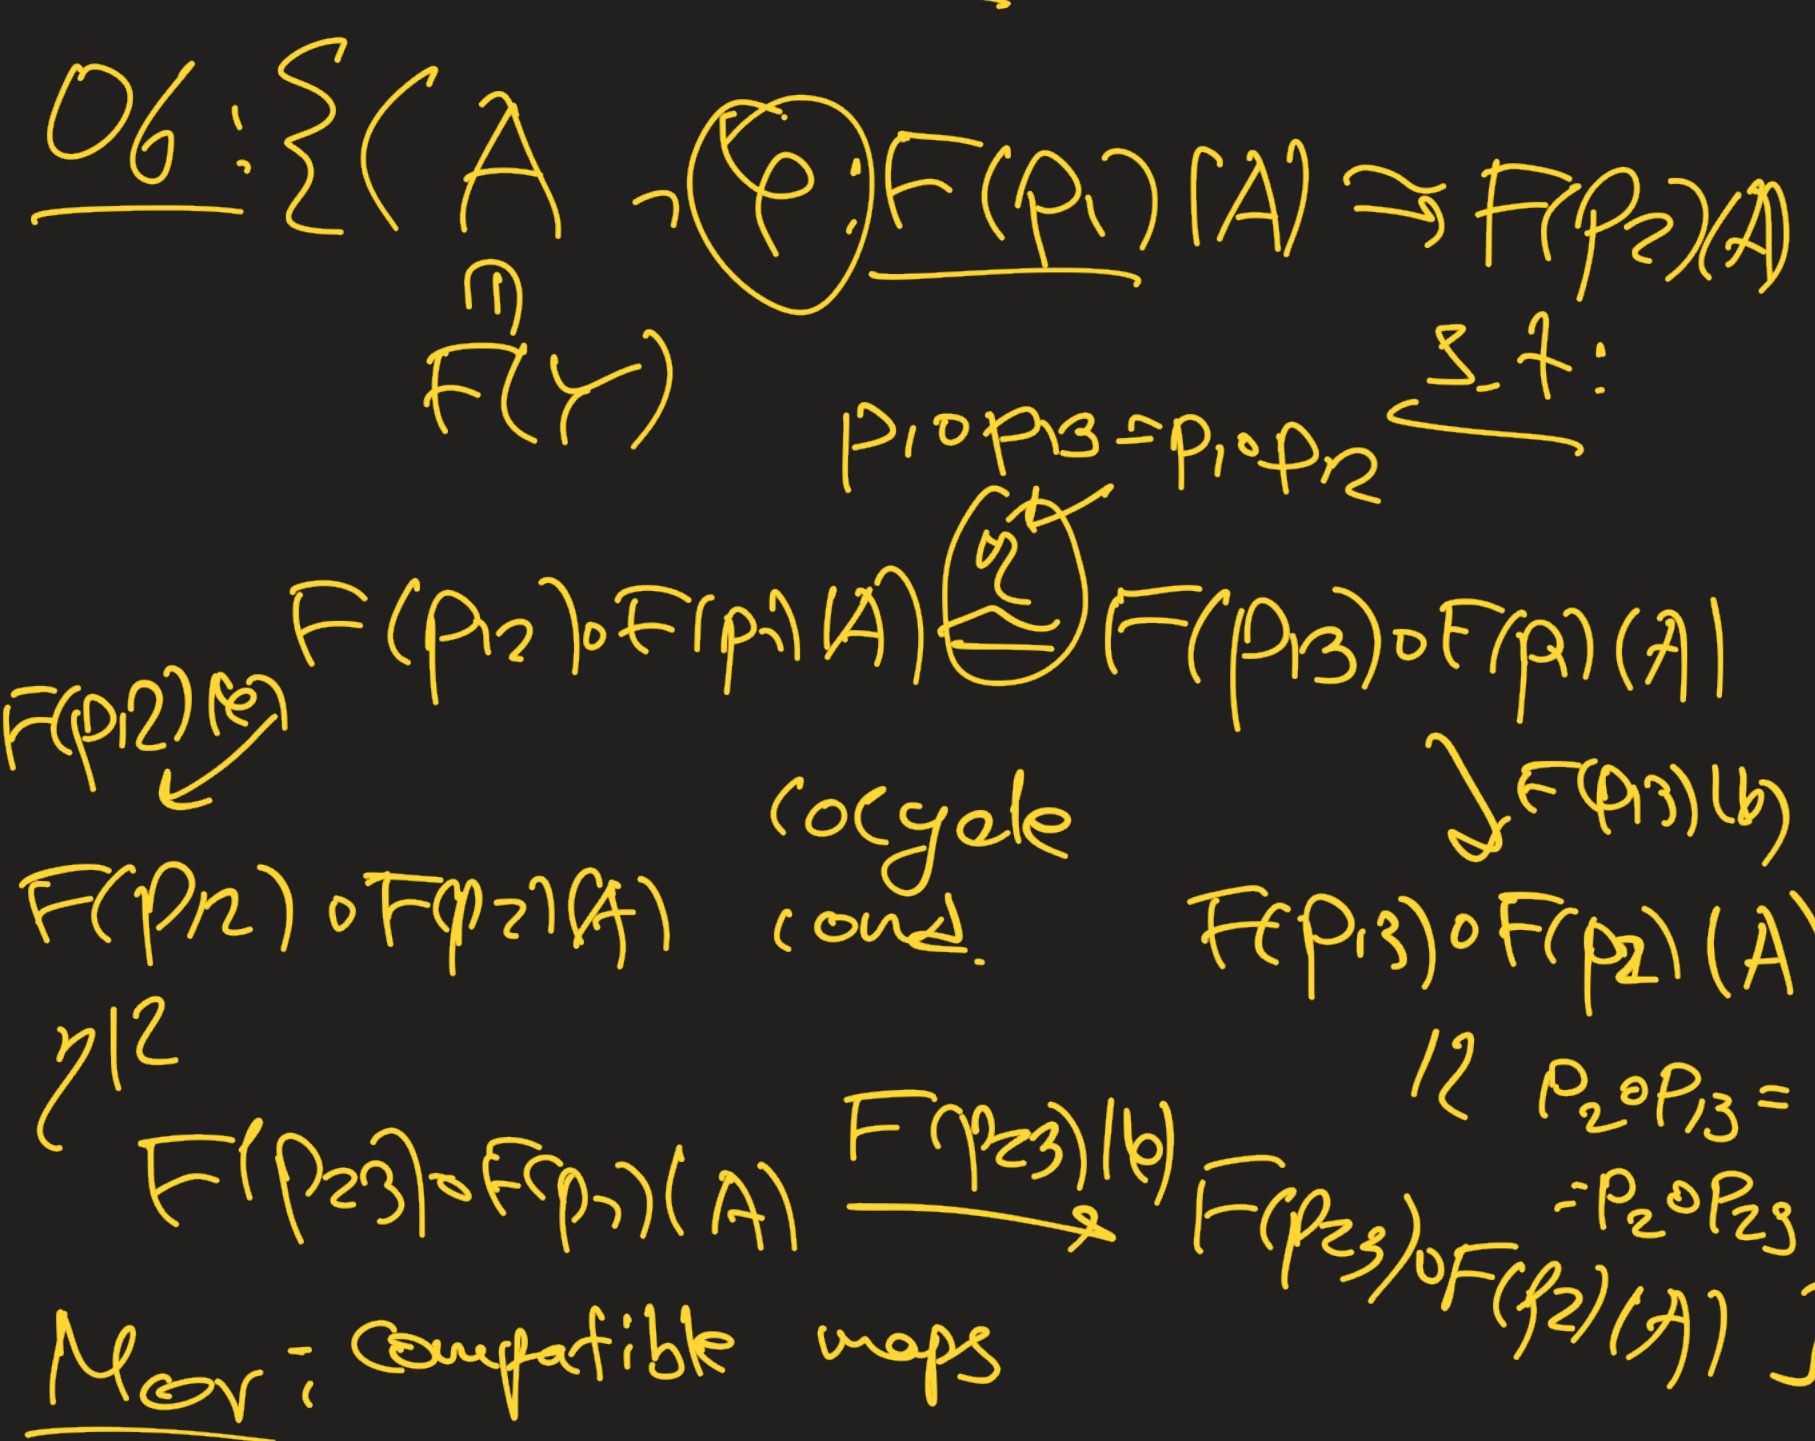 Ob: {(A, φ: F(p₁)(A) ⥲ F(p₂)(A)
∩
F(Y)
s.t:
p₁∘p₁₃ = p₁∘p₁₂
η
F(p₁₂)∘F(p₁)(A) ≅ F(p₁₃)∘F(p₁)(A)
F(p₁₂)(φ) ↙ ↘ F(p₁₃)(φ)
cocycle
F(p₁₂)∘F(p₂)(A) cond. F(p₁₃)∘F(p₂)(A)
η ≀≀ ≀≀ p₂∘p₁₃ =
F(p₂₃)(φ)
F(p₂₃)∘F(p₁)(A) → F(p₂₃)∘F(p₂)(A) }
= p₂∘p₂₃
Mor: Compatible maps